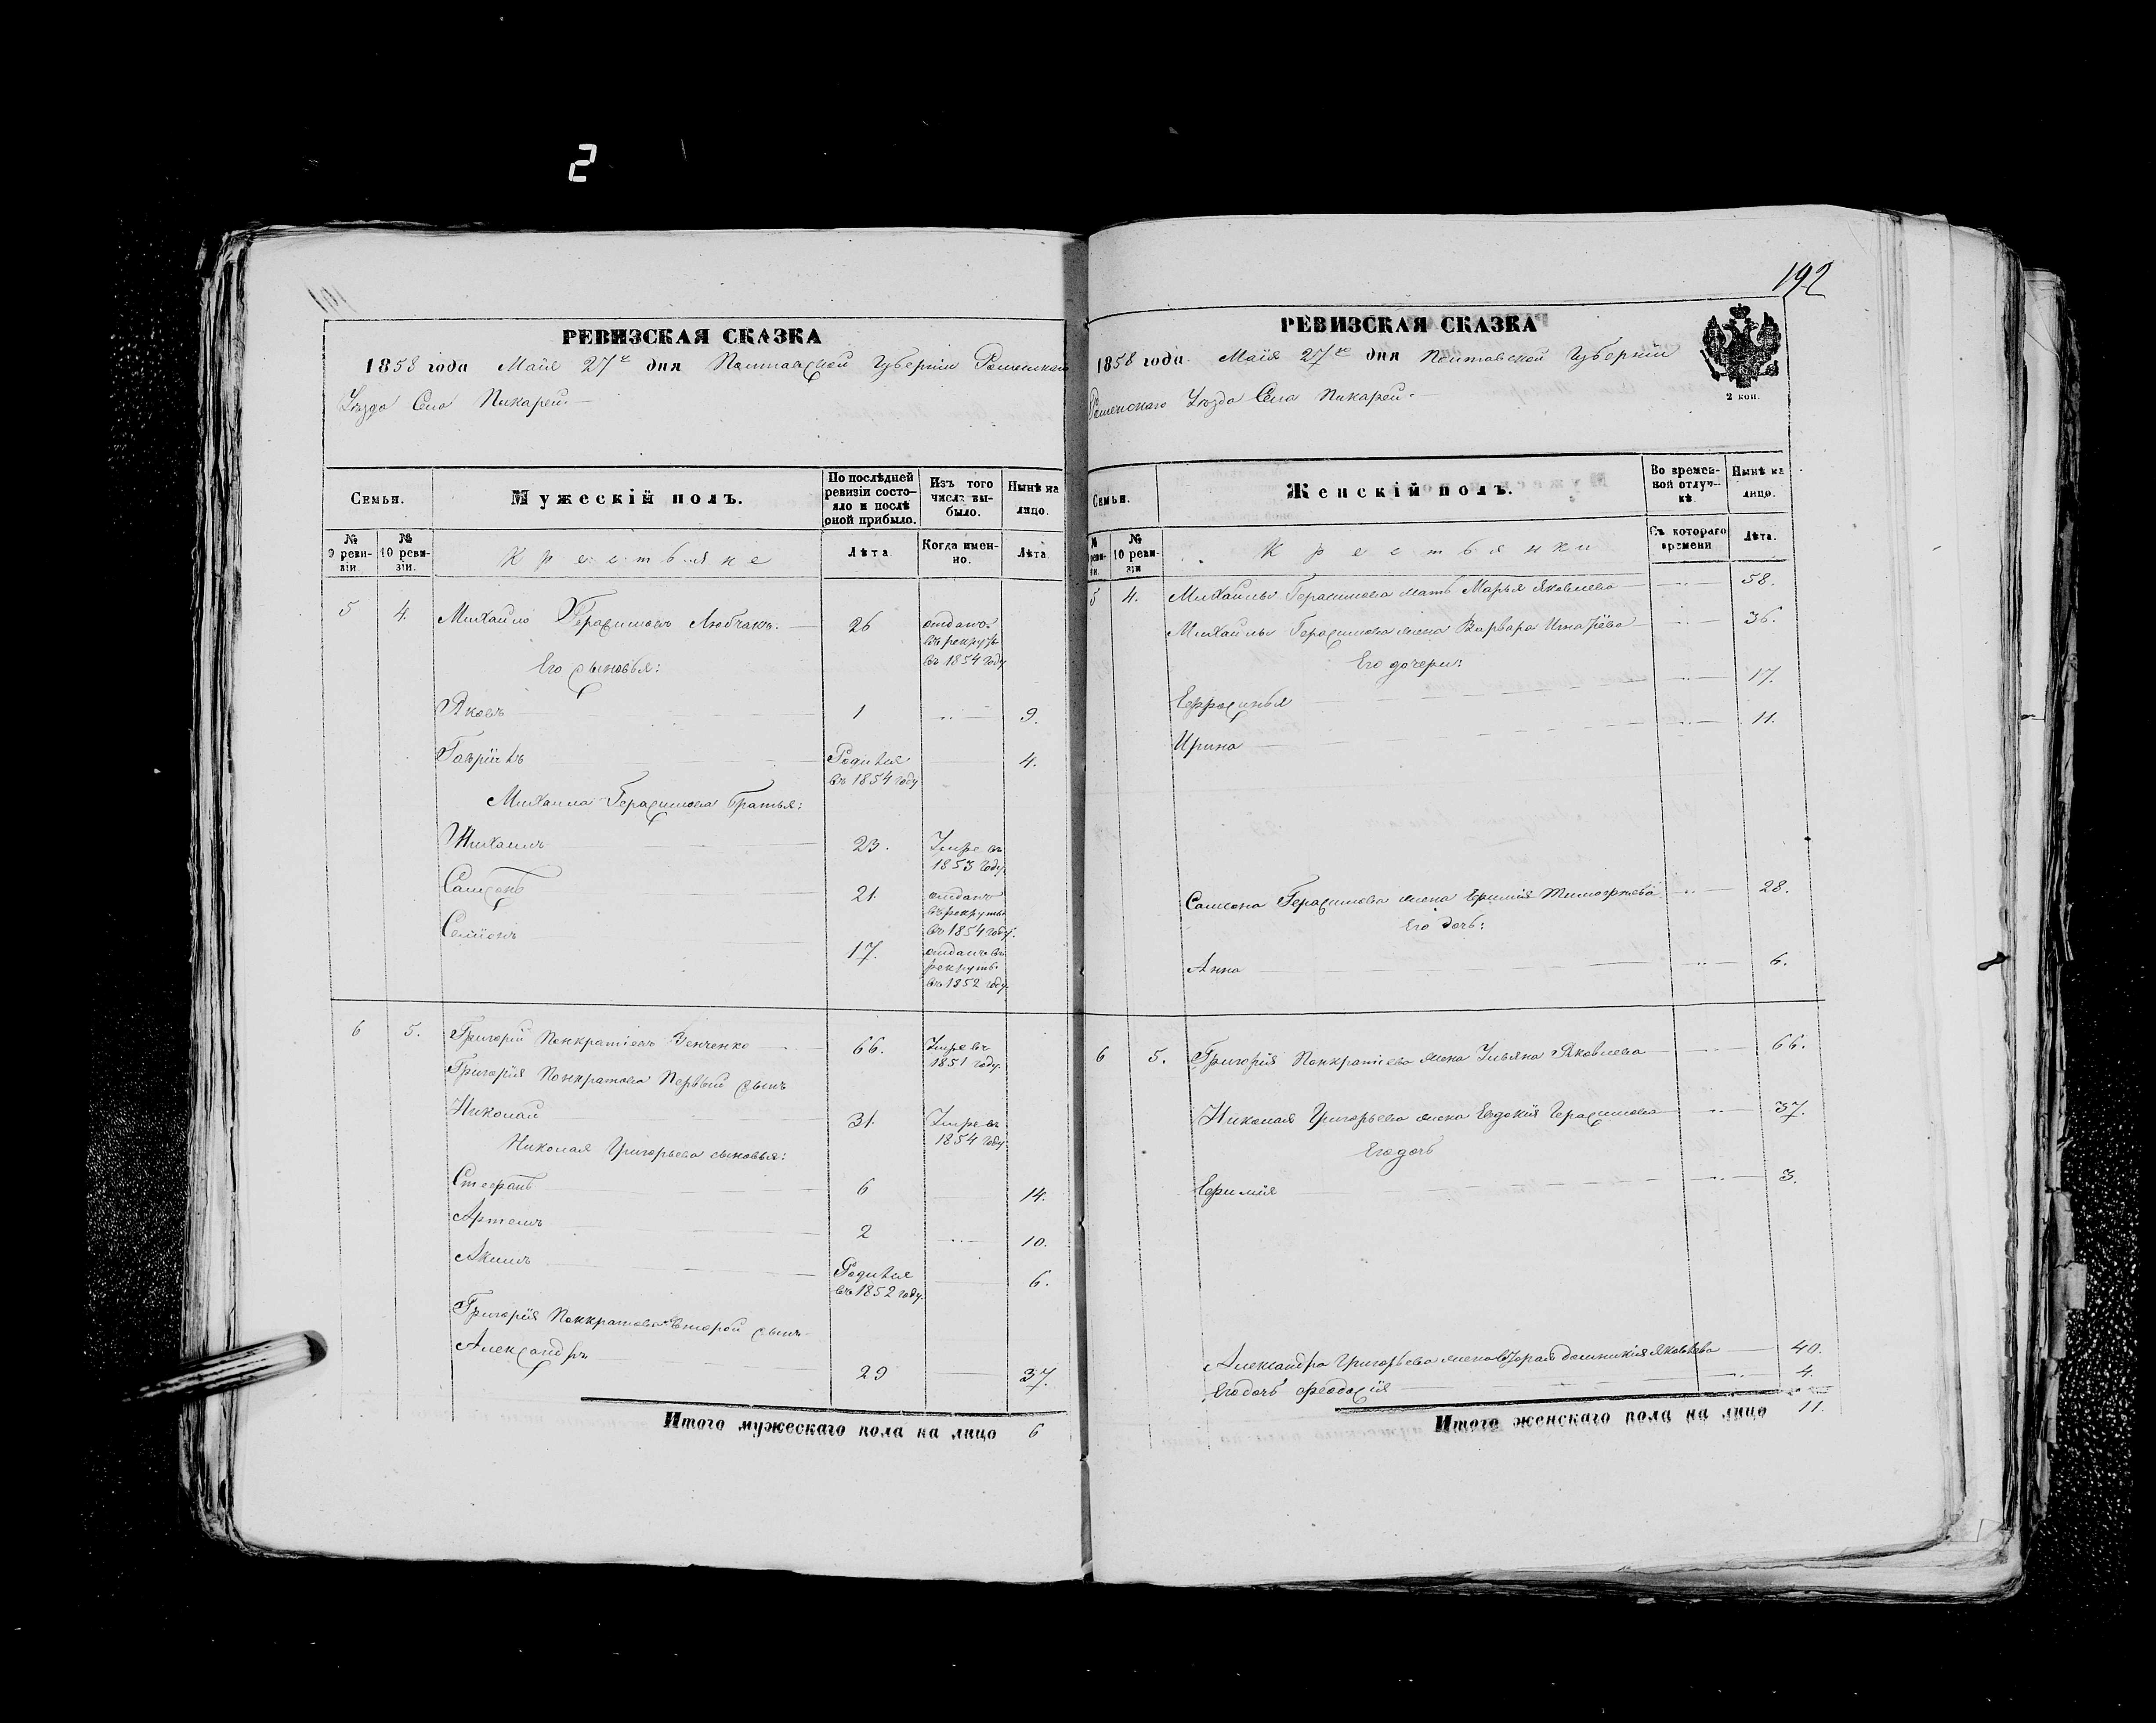 2
РЕВИЗСКАЯ СКАЗКА
1858 года Маія 27го дня Полтавской Губерніи Роменскаго
Уѣзда Села Пикарей.
Семьи.
Мужескій полъ.
По послѣдней ревизіи состояло и послѣ оной прибыло.
Изъ того числа выбыло.
Нынѣ на лицо.
№ 9 ревизіи.
№ 10 ревизіи.
Крестьяне
Лѣта
Когда именно.
Лѣта.
5 4. Михайло Герасимовъ Любчакъ. 26 отданъ въ рекруты въ 1854 году
Его сыновья:
Яковъ 1 9.
Гаврiилъ Родился въ 1854 году 4.
Михаила Герасимова братья:
Михаилъ 23. Умре въ 1853 году.
Самсонъ 21. отданъ въ рекруты въ 1854 году.
Семіонъ 17. отданъ въ рекруты въ 1852 году.
6 5. Григорій Понкратіевъ Генченко 66. Умре въ 1851 году.
Григорія Понкратова Первый сынъ
Николай 31. Умре въ 1854 году.
Николая Григорьева сыновья:
Стефанъ 6 14.
Артемъ 2 10.
Акимъ Родился въ 1852 году. 6.
Григорія Понкратова Второй сынъ
Александръ 29 37.
Итого мужескаго пола на лицо 6
192
РЕВИЗСКАЯ СКАЗКА
2 коп.
1858 года. Маія 27го дня Полтавской Губерніи
Роменскаго Уѣзда Села Пикарей.
Семьи.
Женскій полъ.
Во временной отлучкѣ.
Нынѣ на лицо.
№ 9 ревизіи.
№ 10 ревизіи
Крестьянки
Съ котораго времени
Лѣта.
5 4. Михайлы Герасимова мать Марья Яковлева 58.
Михайлы Герасимова жена Варвара Игнатіева 36.
Его дочери:
Ефросинья 17.
Ирина 11.
Самсона Герасимова жена Ефимія Тимофѣева 28.
Его дочь:
Анна 6.
6 5. Григорія Понкратіева жена Ульяна Яковлева 66.
Николая Григорьева жена Евдокія Герасимова 37.
Его дочь
Ефимія 3.
Александра Григорьева жена вторая Домникія Яковлева 40.
Его дочь Феодосія 4.
Итого женскаго пола на лицо 11.